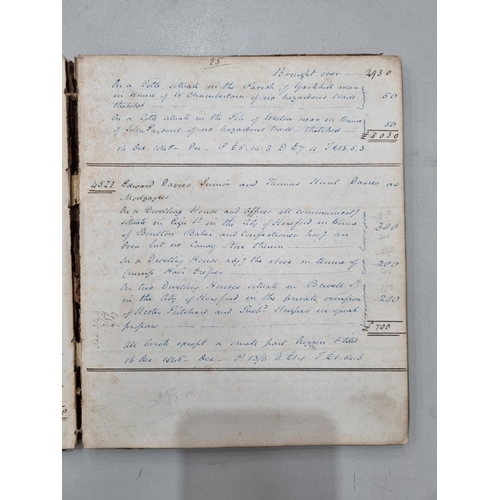 75
Brought over — 4930
On a Cottg situate in the Parish of Yarkhill near
in tenure of W Chamberlain of no hazardous trade
thatched — 50
On a Cottg situate in the Psh of Weston near in tenure
of John Parsons of no hazardous trade — thatched — 50
£5030
16 Dec 1846 — Dec.
4521 Edward Davies Junior and Thomas Hunt Davies as
Mortgagees
On a Dwelling House and Offices all communicatg
situate in High St in the City of Hereford in tenure
of Boulton Baker and Confectioner havg an
Oven but no Candy Stove therein — 300
On a Dwelling House adjg the above in tenure of
Crump Hair Dresser — 200
On two Dwelling Houses situate in Bewell St
in the City of Hereford in the private occupation
of Hester Pritchard and Richd Hughes in equal
propns — 200
£700
All brick except a small part & tiled
16 Dec 1846 — Dec.